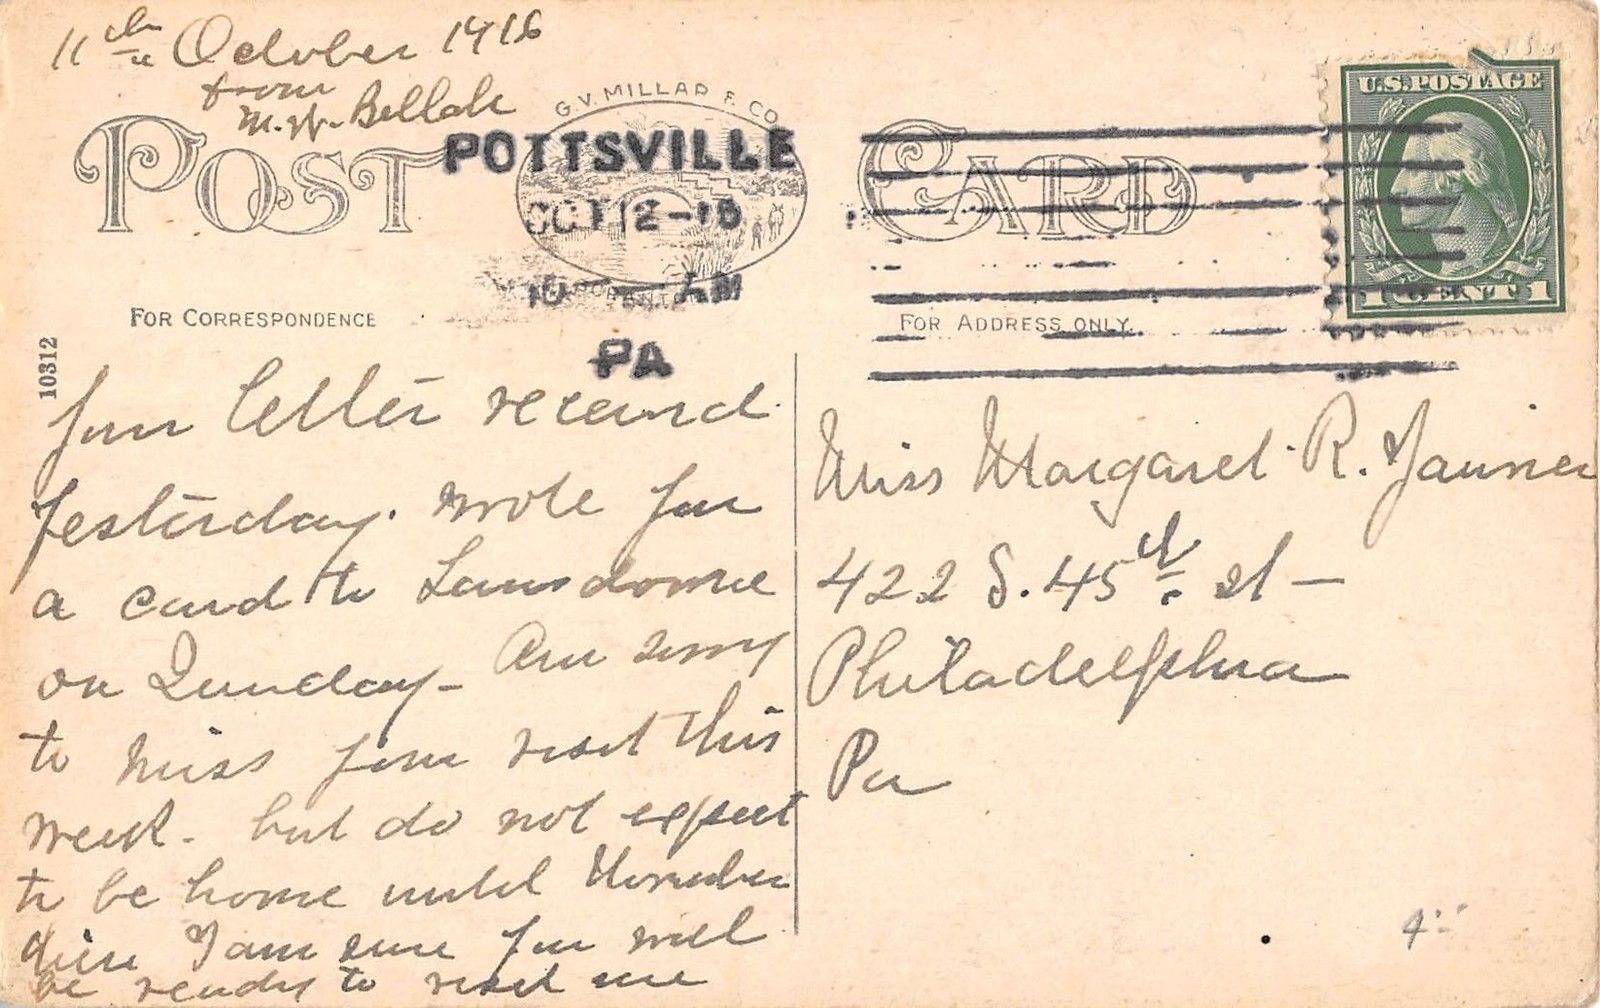 11th October 1916
from
M. W. Bellak
G. V. MILLAR & CO
POST CARD
POTTSVILLE
OCT 12-16
10 — AM
PA
FOR CORRESPONDENCE
FOR ADDRESS ONLY.
10312
U.S. POSTAGE
1 CENT 1
Your letter received
yesterday. wrote you
a card to Lansdowne
on Sunday - Am sorry
to miss your visit this
week. but do not expect
to be home until November
I am sure you will
be ready to visit me
Miss Margaret R.
422 S. 45th st —
Philadelphia
Pa